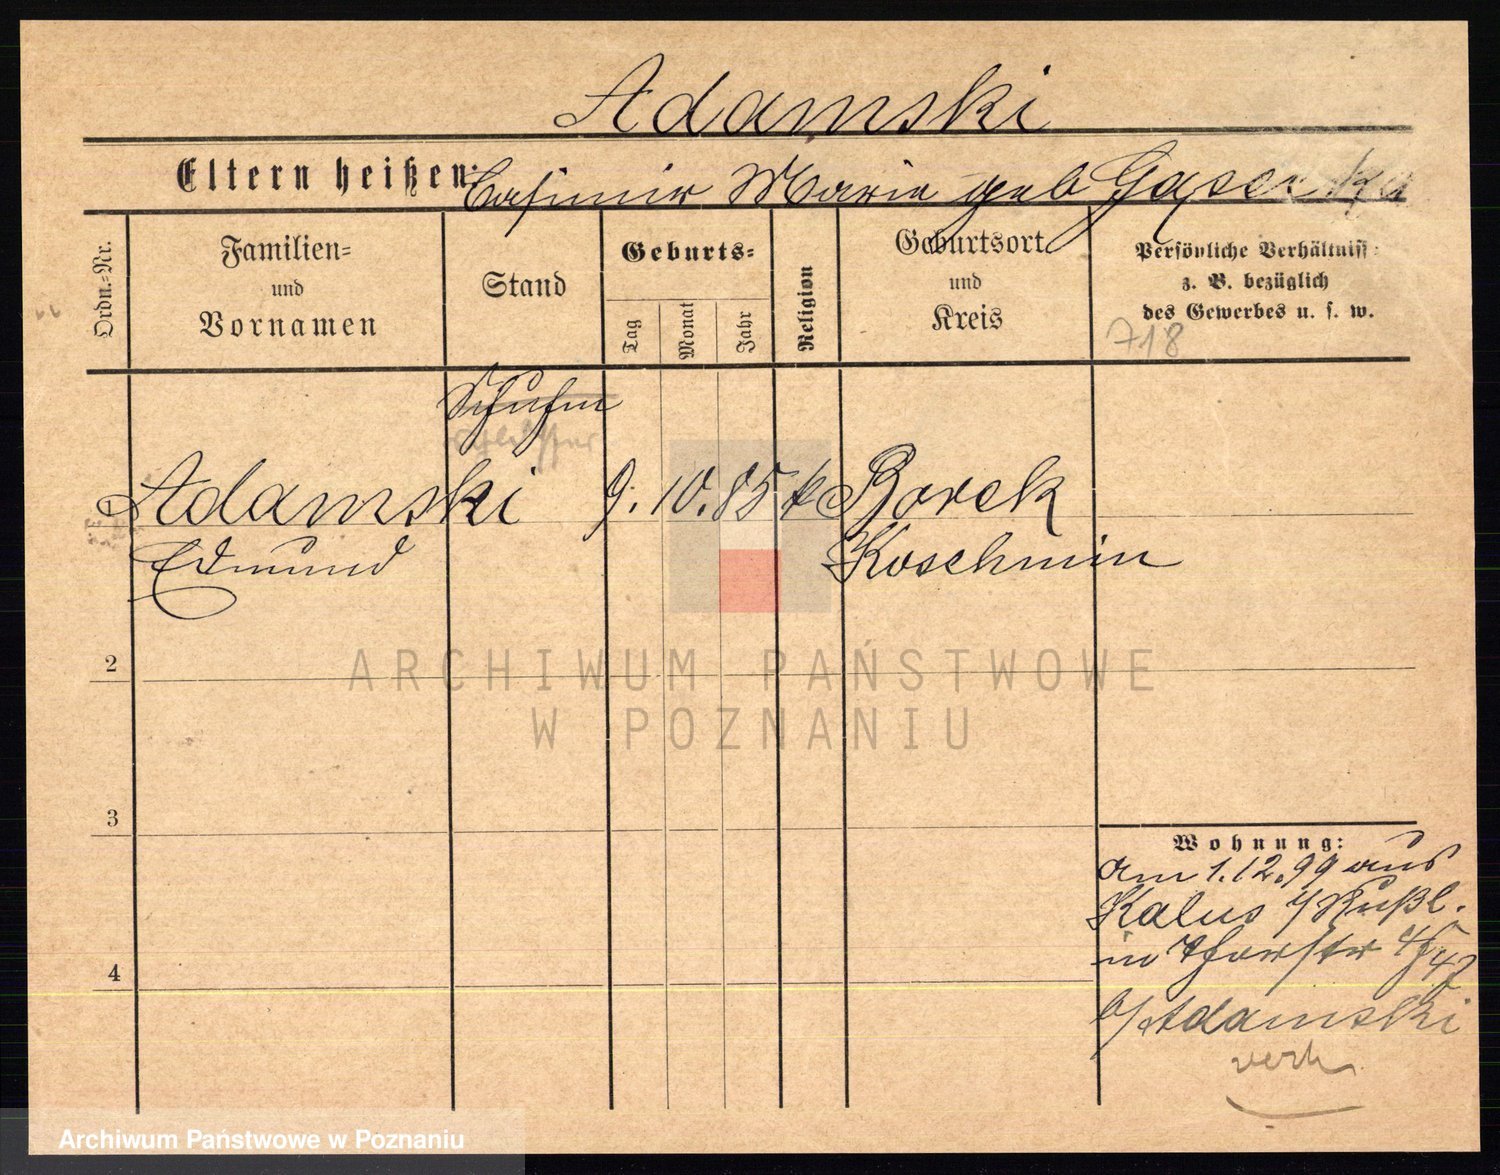 Adamski
Eltern heißen: Casimir Marie geb
Ordn.-Nr.
Familien-
und
Vornamen
Stand
Geburts-
Tag
Monat
Jahr
Religion
Geburtsort
und
Kreis
Persönliche Verhältniss
z. B. bezüglich
des Gewerbes u. s. w.
718
Schuhm
1 Adamski 9. 10. 85 k Borek
Edmund Koschmin
2
3
4
Wohnung:
am 1.12.99 aus
Kalus Rußl.
in
b/Adamski
verh
ARCHIWUM PAŃSTWOWE
W POZNANIU
Archiwum Państwowe w Poznaniu